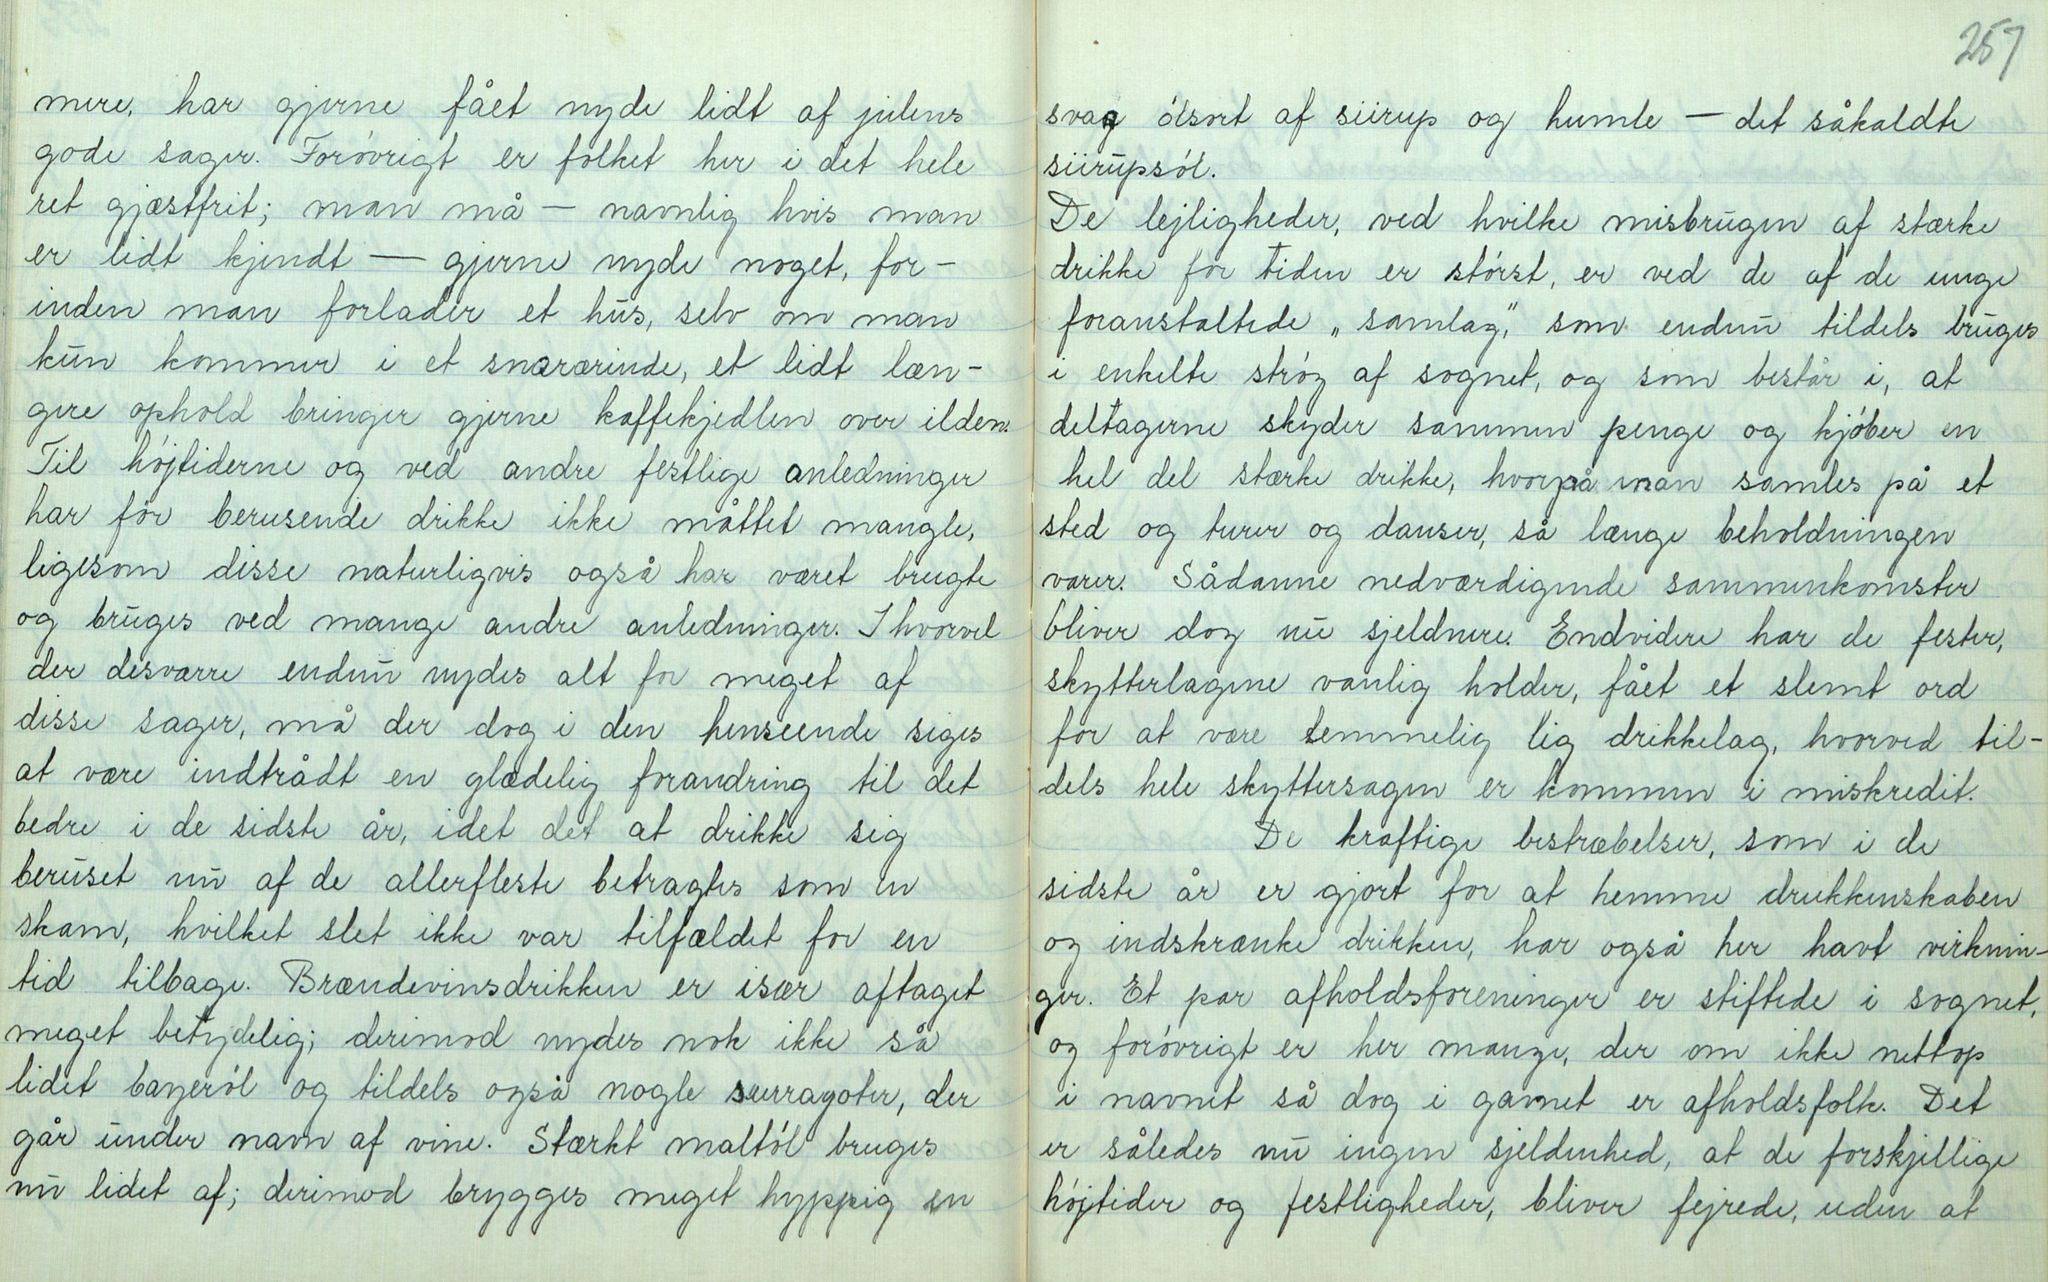 mere, har gjerne fået nyde lidt af julens
gode sager. Forøvrigt er folket her i det hele
ret gjæstfrit; man må — navnlig hvis man
er lidt kjendt — gjerne nyde noget, for-
inden man forlader et hus, selv om man
kun kommer i et snarærinde, et lidt læn-
gere ophold bringer gjerne kaffekjedlen over ilden.
Til højtiderne og ved andre festlige anledninger
har før berusende drikke ikke måttet mangle,
ligesom disse naturligvis også har været brugte
og bruges ved mange andre anledninger. Ihvorvel
der desværre endnu nydes alt for meget af
disse sager, må der dog i den henseende siges
at være indtrådt en glædelig forandring til det
bedre i de sidste år, idet det at drikke sig
beruset nu af de allerfleste betragtes som en
skam, hvilket slet ikke var tilfældet for en
tid tilbage. Brændevinsdrikken er især aftaget
meget betydelig; derimod nydes nok ikke så
lidet bayerøl og tildels også nogle surragoter, der
går under navn af vine. Stærkt maltøl bruges
nu lidet af; derimod brygges meget hyppig en
257
svag ølsort af siirup og humle — det såkaldte
siirupsøl.
De lejligheder, ved hvilke misbrugen af stærke
drikke for tiden er størst, er ved de af de unge
foranstaltede „samlag", som endnu tildels bruges
i enkelte strøg af sognet, og som består i, at
deltagerne skyder sammen penge og kjøber en
hel del stærke drikke, hvorpå man samles på et
sted og turer og danser, så længe beholdningen
varer. Sådanne nedværdigende sammenkomster
bliver dog nu sjeldnere. Endvidere har de fester,
skytterlagene vanlig holder, fået et slemt ord
for at være temmelig lig drikkelag, hvorved til-
dels hele skyttersagen er kommen i miskredit.
De kraftige bestræbelser, som i de
sidste år er gjort for at hemme drukkenskaben
og indskrænke drikken, har også her havt virknin-
ger. Et par afholdsforeninger er stiftede i sognet,
og forøvrigt er her mange, der om ikke nettop
i navnet så dog i gavnet er afholdsfolk. Det
er således nu ingen sjeldenhed, at de forskjellige
højtider og festligheder, bliver fejrede, uden at